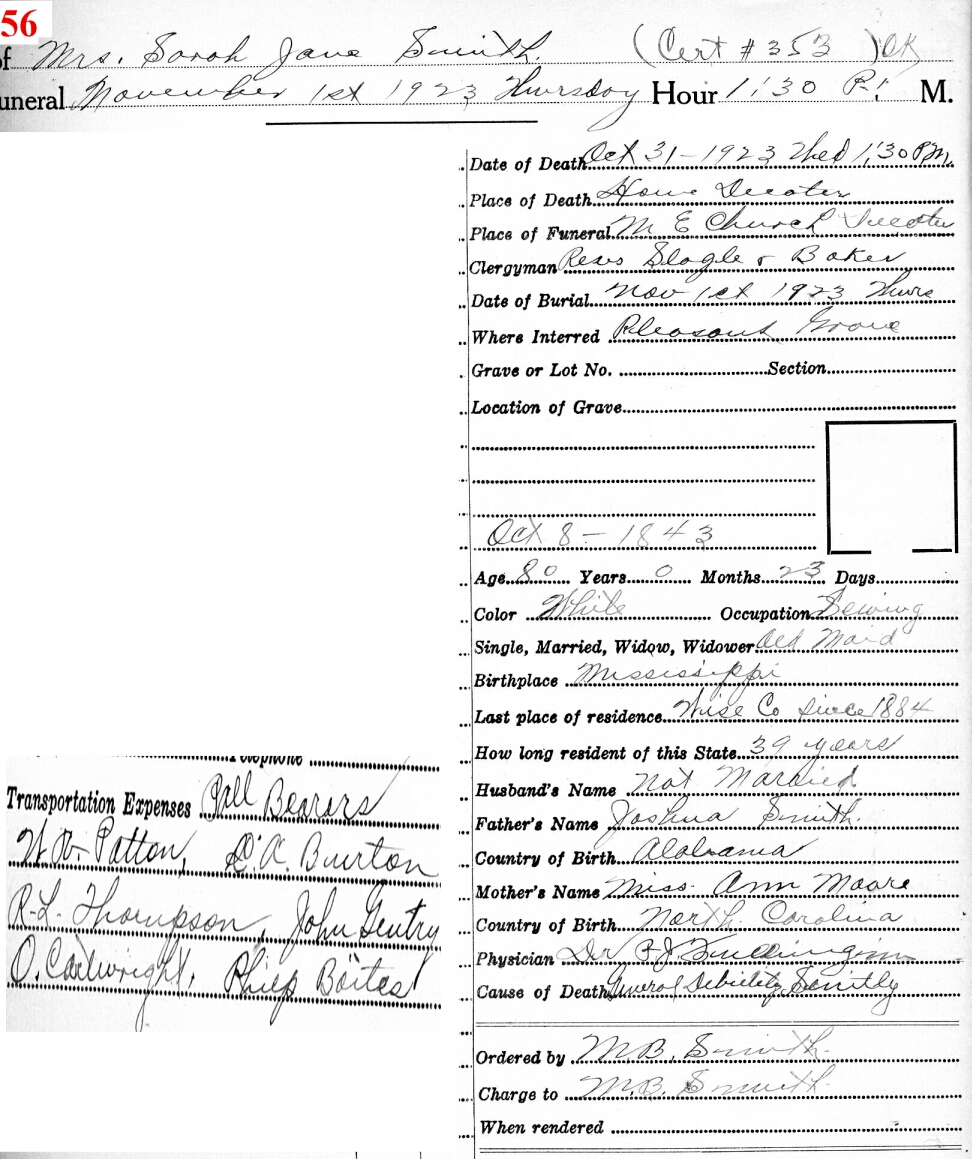 56
of Mrs. Sarah Jane Smith. (Cert # 353 ) OK
uneral November 1st 1923 Thursday Hour 1:30 P. M.
Date of Death Oct 31-1923 Wed 1:30 PM.
Place of Death Home Decatur
Place of Funeral M E Church Decatur
Clergyman Revs Slagle & Baker
Date of Burial Nov 1st 1923 Thurs
Where Interred Pleasant Grove
Grave or Lot No. Section
Location of Grave
Oct 8 - 1843
Age 80 Years 0 Months 23 Days
Color White Occupation Sewing
Single, Married, Widow, Widower Old Maid
Birthplace Mississippi
Last place of residence Wise Co since 1884
How long resident of this State 39 years
Husband's Name Not Married
Father's Name Joshua Smith.
Country of Birth Alabama
Mother's Name Miss. Ann Moore
Country of Birth North Carolina
Physician Dr P.J.
Cause of Death General Debility
Ordered by M.B. Smith.
Charge to M.B. Smith.
When rendered
Telephone
Transportation Expenses Pall Bearors
W.W. Patton, D.A. Burton
R.L. Thompson, John Gentry
O. Cartwright, Boites